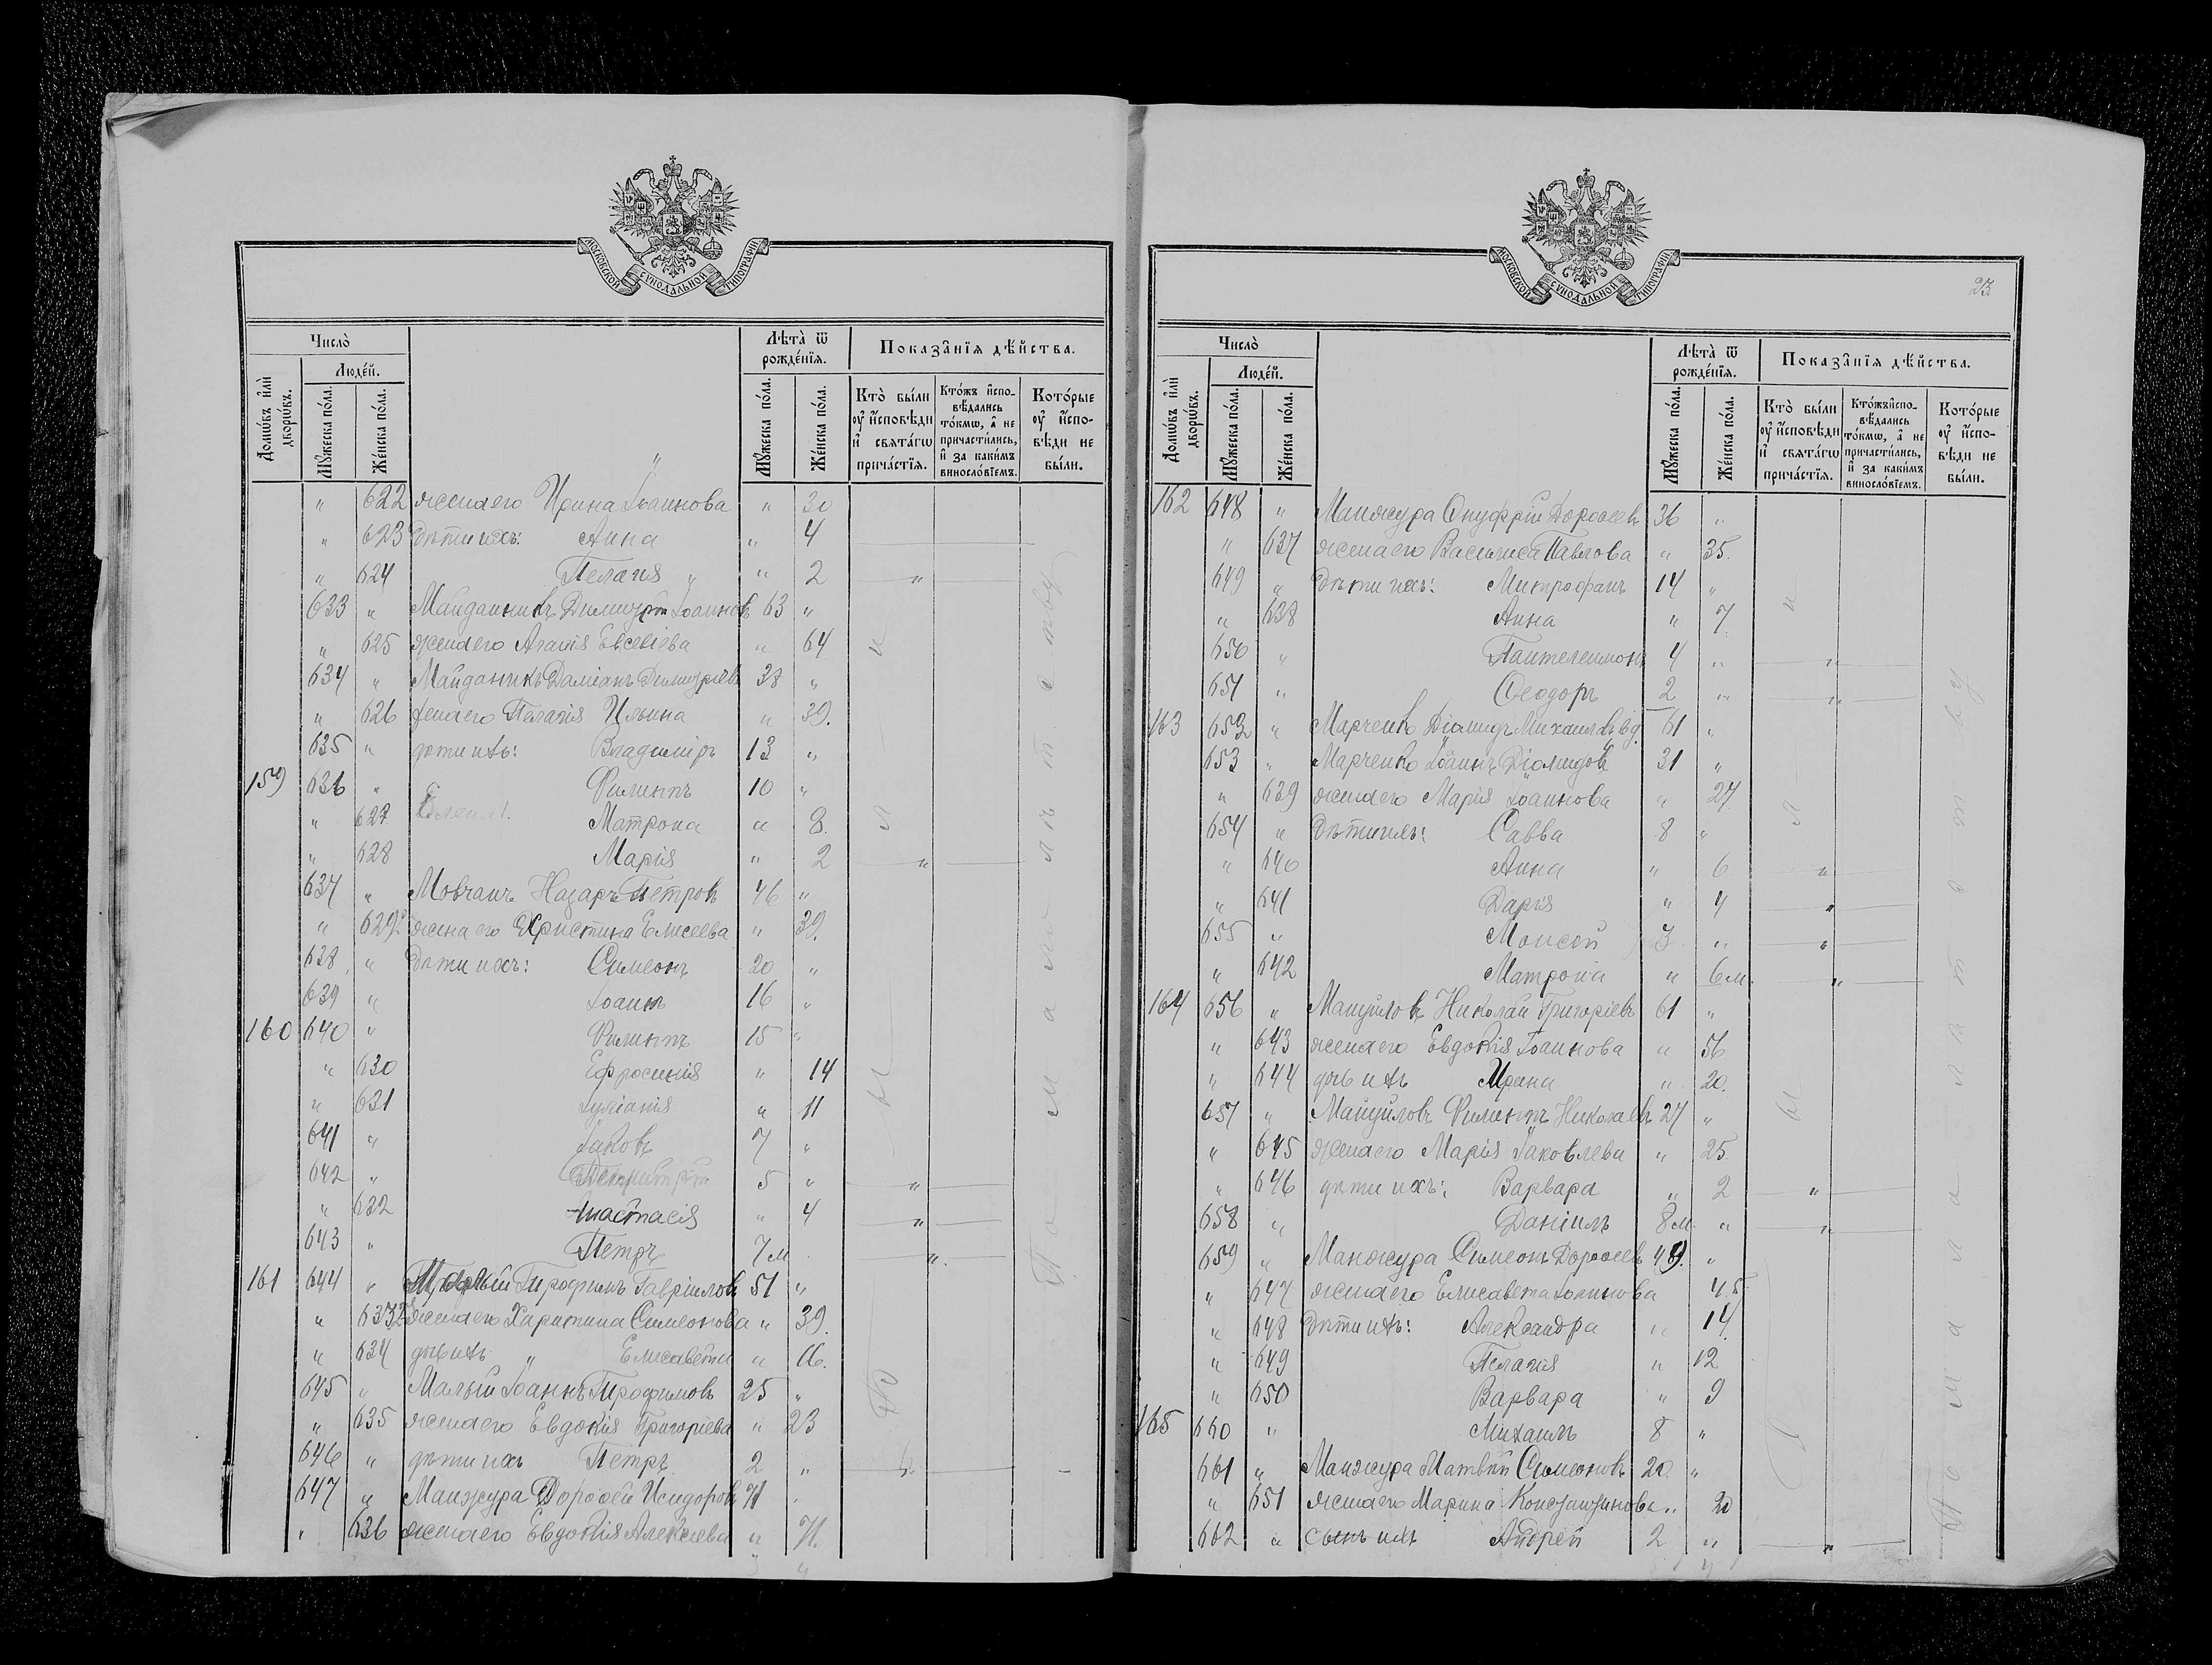 МОСКОВСКОЙ СУНОДАЛЬНОЙ ТИПОГРАФІИ
Число̀
Людей.
Лѣта̀ ѿ рождéнїѧ.
Показа̂нїѧ дѣ́йства.
Домѡ́въ и҆лѝ дворѡ́въ.
Мꙋ́жеска по́ла.
Же́нска по́ла.
Мꙋ́жеска по́ла.
Же́нска по́ла.
Кто̀ бы́ли оу҆ и҆сповѣди и҆ свѧта́гѡ прича́стїѧ.
Кто́жъ и҆сповѣдались то́кмѡ, а҆ не причасти́лись, и҆ за каки́мъ винослóвїемъ.
Кото́рые оу҆ и҆споვѣди не бы́ли.
" 622 жена его Ирина Іоаннова " 30
" 623 Дѣти ихъ: Анна " 4
" 624 Пелагія " 2 "
633 " Майданикъ Димитрій Іоанновъ 63 "
" 625 жена его Агапія Евсевіева " 64
634 " Майданикъ Даміанъ Димитріевъ 38 "
" 626 жена его Пелагія Ильина " 39.
635 " дѣти ихъ: Владиміръ 13 "
159 636 " Филиппъ 10 "
" 627 Матрона " 8.
" 628 Марія " 2 "
637 " Мовчанъ Назаръ Петровъ 46 "
" 629 жена его Христина Елисеева " 39.
638 " Дѣти ихъ: Симеонъ 20 "
639 " Іоаннъ 16 "
160 640 " Филиппъ 15 "
" 630 Ефросинія " 14
" 631 Іуліанія " 11
641 " Іаковъ 7 "
642 " Димитрій 5 " "
" 632 Анастасія " 4 "
643 " Петръ 7 м "
161 644 " Малый Трофимъ Гавріиловъ 51 "
" 633 жена его Харитина Симеонова " 39.
" 634 дочь ихъ " Елисавета " 16.
645 " Малый Іоаннъ Трофимовъ 25 "
" 635 жена его Евдокія Григоріева " 23
646 " дѣти ихъ Петръ 2 " "
647 " Манжура Дорофей Исидоровъ 71
" 636 жена его Евдокія Алексіева " 71.
МОСКОВСКОЙ СУНОДАЛЬНОЙ ТИПОГРАФІИ
23
Число̀
Людей.
Лѣта̀ ѿ рождéнїѧ.
Показа̂нїѧ дѣ́йства.
Домѡ́въ и҆лѝ дворѡ́въ.
Мꙋ́жеска по́ла.
Же́нска по́ла.
Мꙋ́жеска по́ла.
Же́нска по́ла.
Кто̀ бы́ли оу҆ и҆сповѣди и҆ свѧта́гѡ прича́стїѧ.
Кто́жъ и҆сповѣдались то́кмѡ, а҆ не причасти́лись, и҆ за каки́мъ винослóвїемъ.
Кото́рые оу҆ и҆сповѣди не бы́ли.
162 648 " Манжура Онуфрій Дорофеевъ 36 "
" 637 жена его Василиса Павлова " 35.
649 " Дѣти ихъ: Митрофанъ 14 "
" 638 Анна " 7.
650 " Пантелеимонъ 4 " "
651 " Ѳеодоръ 2 " "
163 652 " Марченко Діомидъ Михаиловъ вд. 61 "
653 " Марченко Іоаннъ Діомидовъ 31 "
" 639 жена его Марія Іоаннова " 27
654 " Дѣти ихъ: Савва 8 "
" 640 Анна " 6 "
" 641 Дарія " 4 "
655 " Моисей 3 " "
" 642 Матрона " 6 м. "
164 656 " Мануйловъ Николай Григоріевъ 61 "
" 643 жена его Евдокія Іоаннова " 56
" 644 дочь ихъ Ирина " 20.
657 " Мануйловъ Филиппъ Николаевъ 27 "
" 645 жена его Марія Іаковлева " 25
" 646 дѣти ихъ: Варвара " 2 "
658 " Даніилъ 8 м. " "
659 " Манжура Симеонъ Дорофеевъ 49. "
" 647 жена его Елисавета Іоаннова 45
" 648 Дѣти ихъ: Александра " 14.
" 649 Пелагія " 12
" 650 Варвара " 9
165 660 " Михаилъ 8 "
661 " Манжура Матвѣй Симеоновъ 20. "
" 651 жена его Марина Константинова " 20
662 " сынъ ихъ Андрей 2 " "